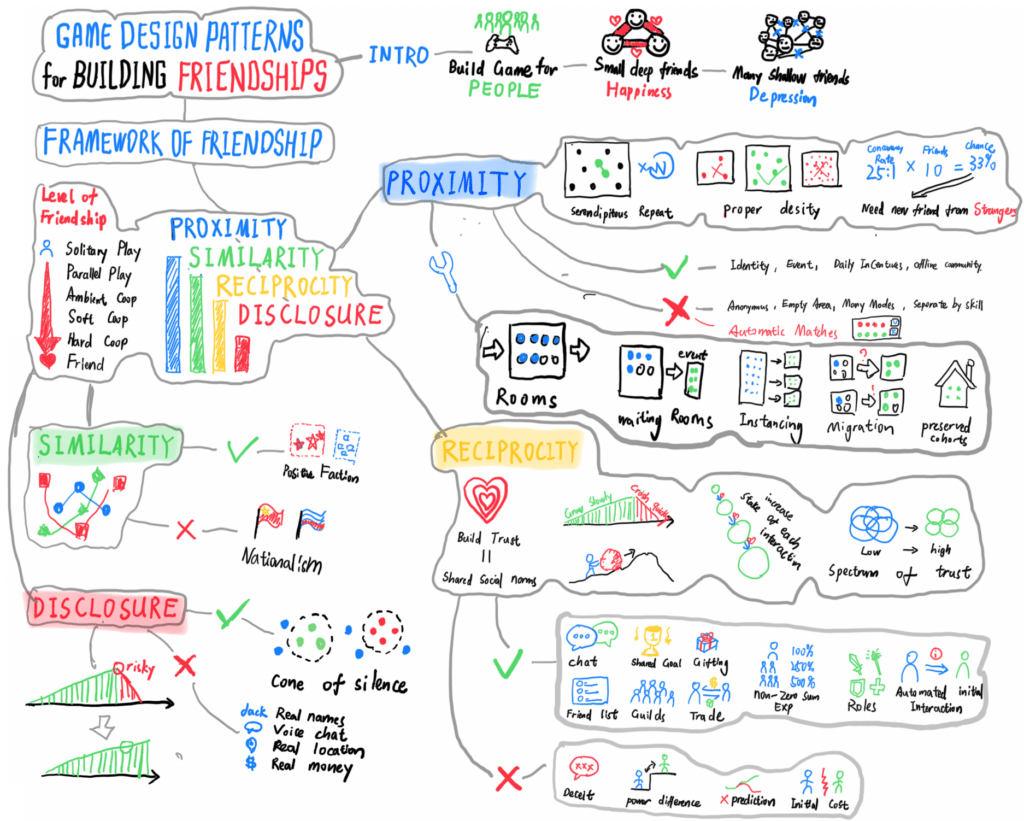 GAME DESIGN PATTERNS
for BUILDING FRIENDSHIPS
INTRO
Build Game for
PEOPLE
Small deep friends
Happiness
Many shallow friends
Depression
FRAMEWORK OF FRIENDSHIP
Level of
Friendship
Solitary Play
Parallel Play
Ambient Coop
Soft Coop
Hard Coop
Friend
PROXIMITY
SIMILARITY
RECIPROCITY
DISCLOSURE
PROXIMITY
serendipitous Repeat
×N
proper desity
Concurrency
Rate
25:1
×
Friends
10
=
Chance
33%
Need new friend from Strangers
Identity, Event, Daily Incentives, offline community
Anonymous, Empty Area, Many Modes, Separate by skill
Automatic Matches
Rooms
waiting Rooms
event
Instancing
?
!
Migration
preserved
cohorts
SIMILARITY
Positive Faction
Nationalism
RECIPROCITY
Build Trust
=
Shared Social norms
Grow Slowly
Crash quickly
increase
stake at each
interaction
Low → high
Spectrum of trust
chat
Shared Goal
Gifting
100%
250%
500%
non-Zero Sum
Exp
Roles
Automated initial
Interaction
Friend list
Guilds
Trade
XXX
Deceit
power difference
× prediction
Initial Cost
DISCLOSURE
risky
Cone of silence
Jack Real names
Voice chat
Real location
$ Real money